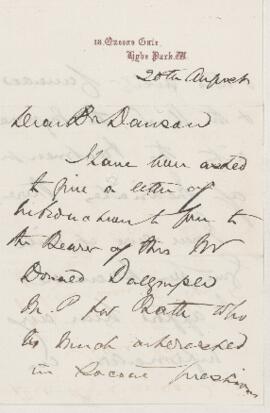 18, Queens Gate,
Hyde Park. W.
20th August
Dear Dr Dawson
I have been asked
to give a letter of
introduction to you to
the Bearer of this Mr
Donald Dalrymple
M. P for Bath who
is much interested
in